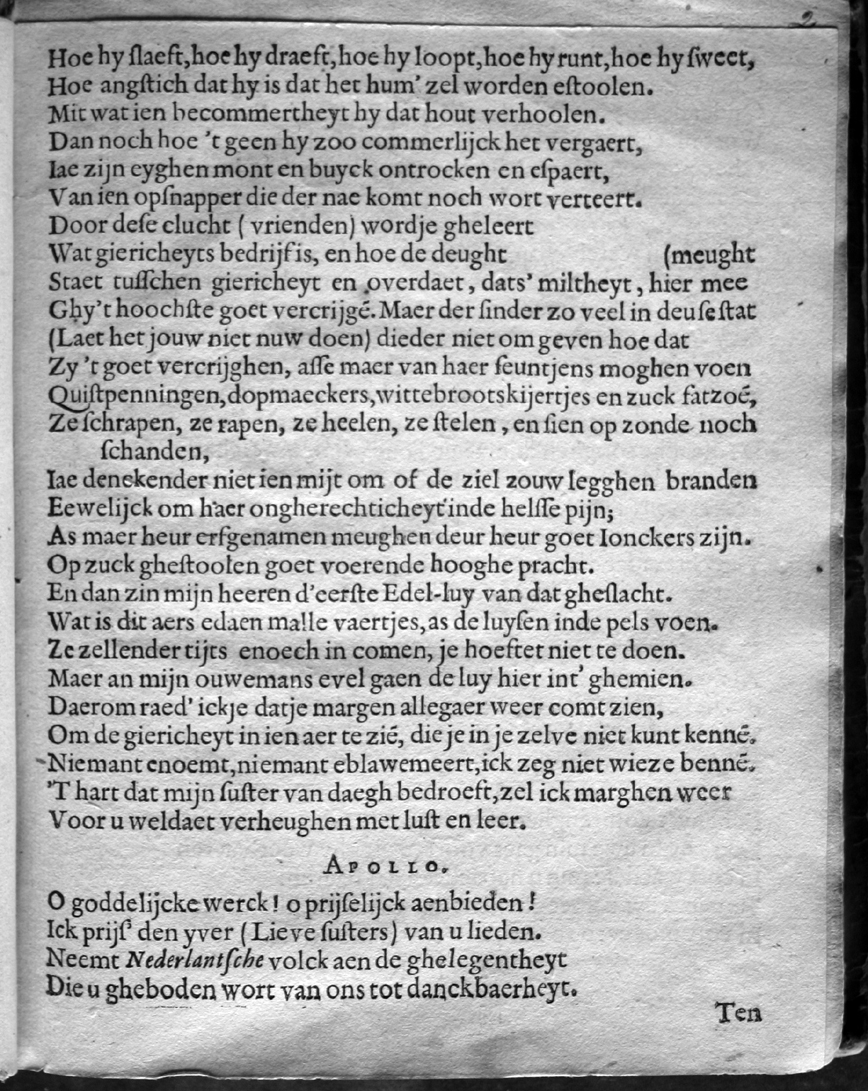 2
Hoe hy ſlaeft,hoe hy draeft,hoe hy loopt,hoe hy runt,hoe hy ſweet,
Hoe angſtich dat hy is dat het hum' zel worden eſtoolen.
Mit wat ien becommertheyt hy dat hout verhoolen.
Dan noch hoe 't geen hy zoo commerlijck het vergaert,
Iae zijn eyghen mont en buyck ontrocken en eſpaert,
Van ien opſnapper die der nae komt noch wort verteert.
Door deſe clucht ( vrienden) wordje gheleert
Wat giericheyts bedrijf is, en hoe de deught (meught
Staet tuſſchen giericheyt en overdaet, dats' miltheyt, hier mee
Ghy't hoochſte goet vercrijgé. Maer der ſinder zo veel in deuſe ſtat
(Laet het jouw niet nuw doen) dieder niet om geven hoe dat
Zy 't goet vercrijghen, aſſe maer van haer ſeuntjens moghen voen
Quiſtpenningen,dopmaeckers,wittebrootskijertjes en zuck fatzoé,
Ze ſchrapen, ze rapen, ze heelen, ze ſtelen, en ſien op zonde noch
ſchanden,
Iae denekender niet ien mijt om of de ziel zouw legghen branden
Eewelijck om haer ongherechticheyt inde helſſe pijn;
As maer heur erfgenamen meughen deur heur goet Ionckers zijn.
Op zuck gheſtoolen goet voerende hooghe pracht.
En dan zin mijn heeren d'eerſte Edel-luy van dat gheſlacht.
Wat is dit aers edaen malle vaertjes,as de luyſen inde pels voen.
Ze zellender tijts enoech in comen, je hoeftet niet te doen.
Maer an mijn ouwemans evel gaen de luy hier int' ghemien.
Daerom raed' ickje datje margen allegaer weer comt zien,
Om de giericheyt in ien aer te zié, die je in je zelve niet kunt kenné.
Niemant enoemt,niemant eblawemeert,ick zeg niet wieze benné.
'T hart dat mijn ſuſter van daegh bedroeft,zel ick marghen weer
Voor u weldaet verheughen met luſt en leer.
APOLLO.
O goddelijcke werck! o prijſelijck aenbieden!
Ick prijſ' den yver (Lieve ſuſters) van u lieden.
Neemt Nederlantſche volck aen de ghelegentheyt
Die u gheboden wort van ons tot danckbaerheyt.
Ten